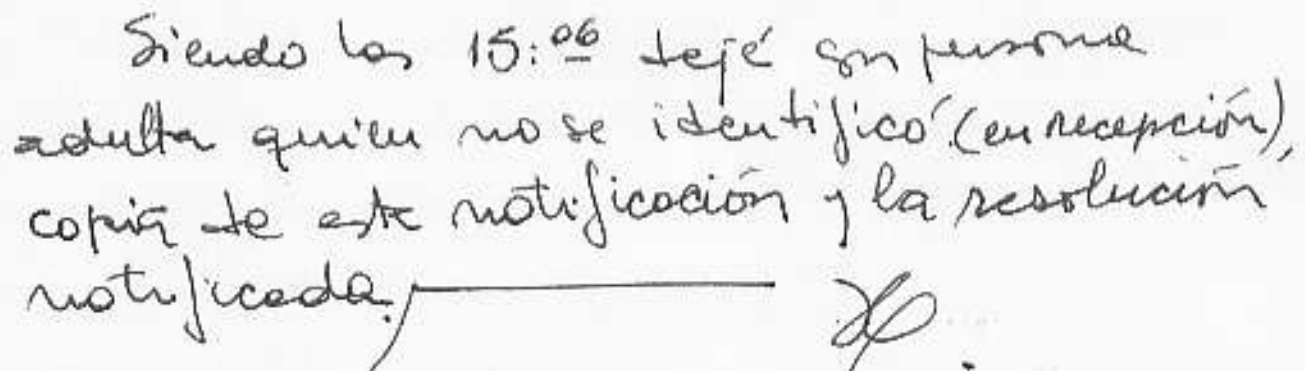 Siendo las 15:06 dejé con persona
adulta quien no se identificó (en recepción),
copia de este notificación y la resolución
notificada.